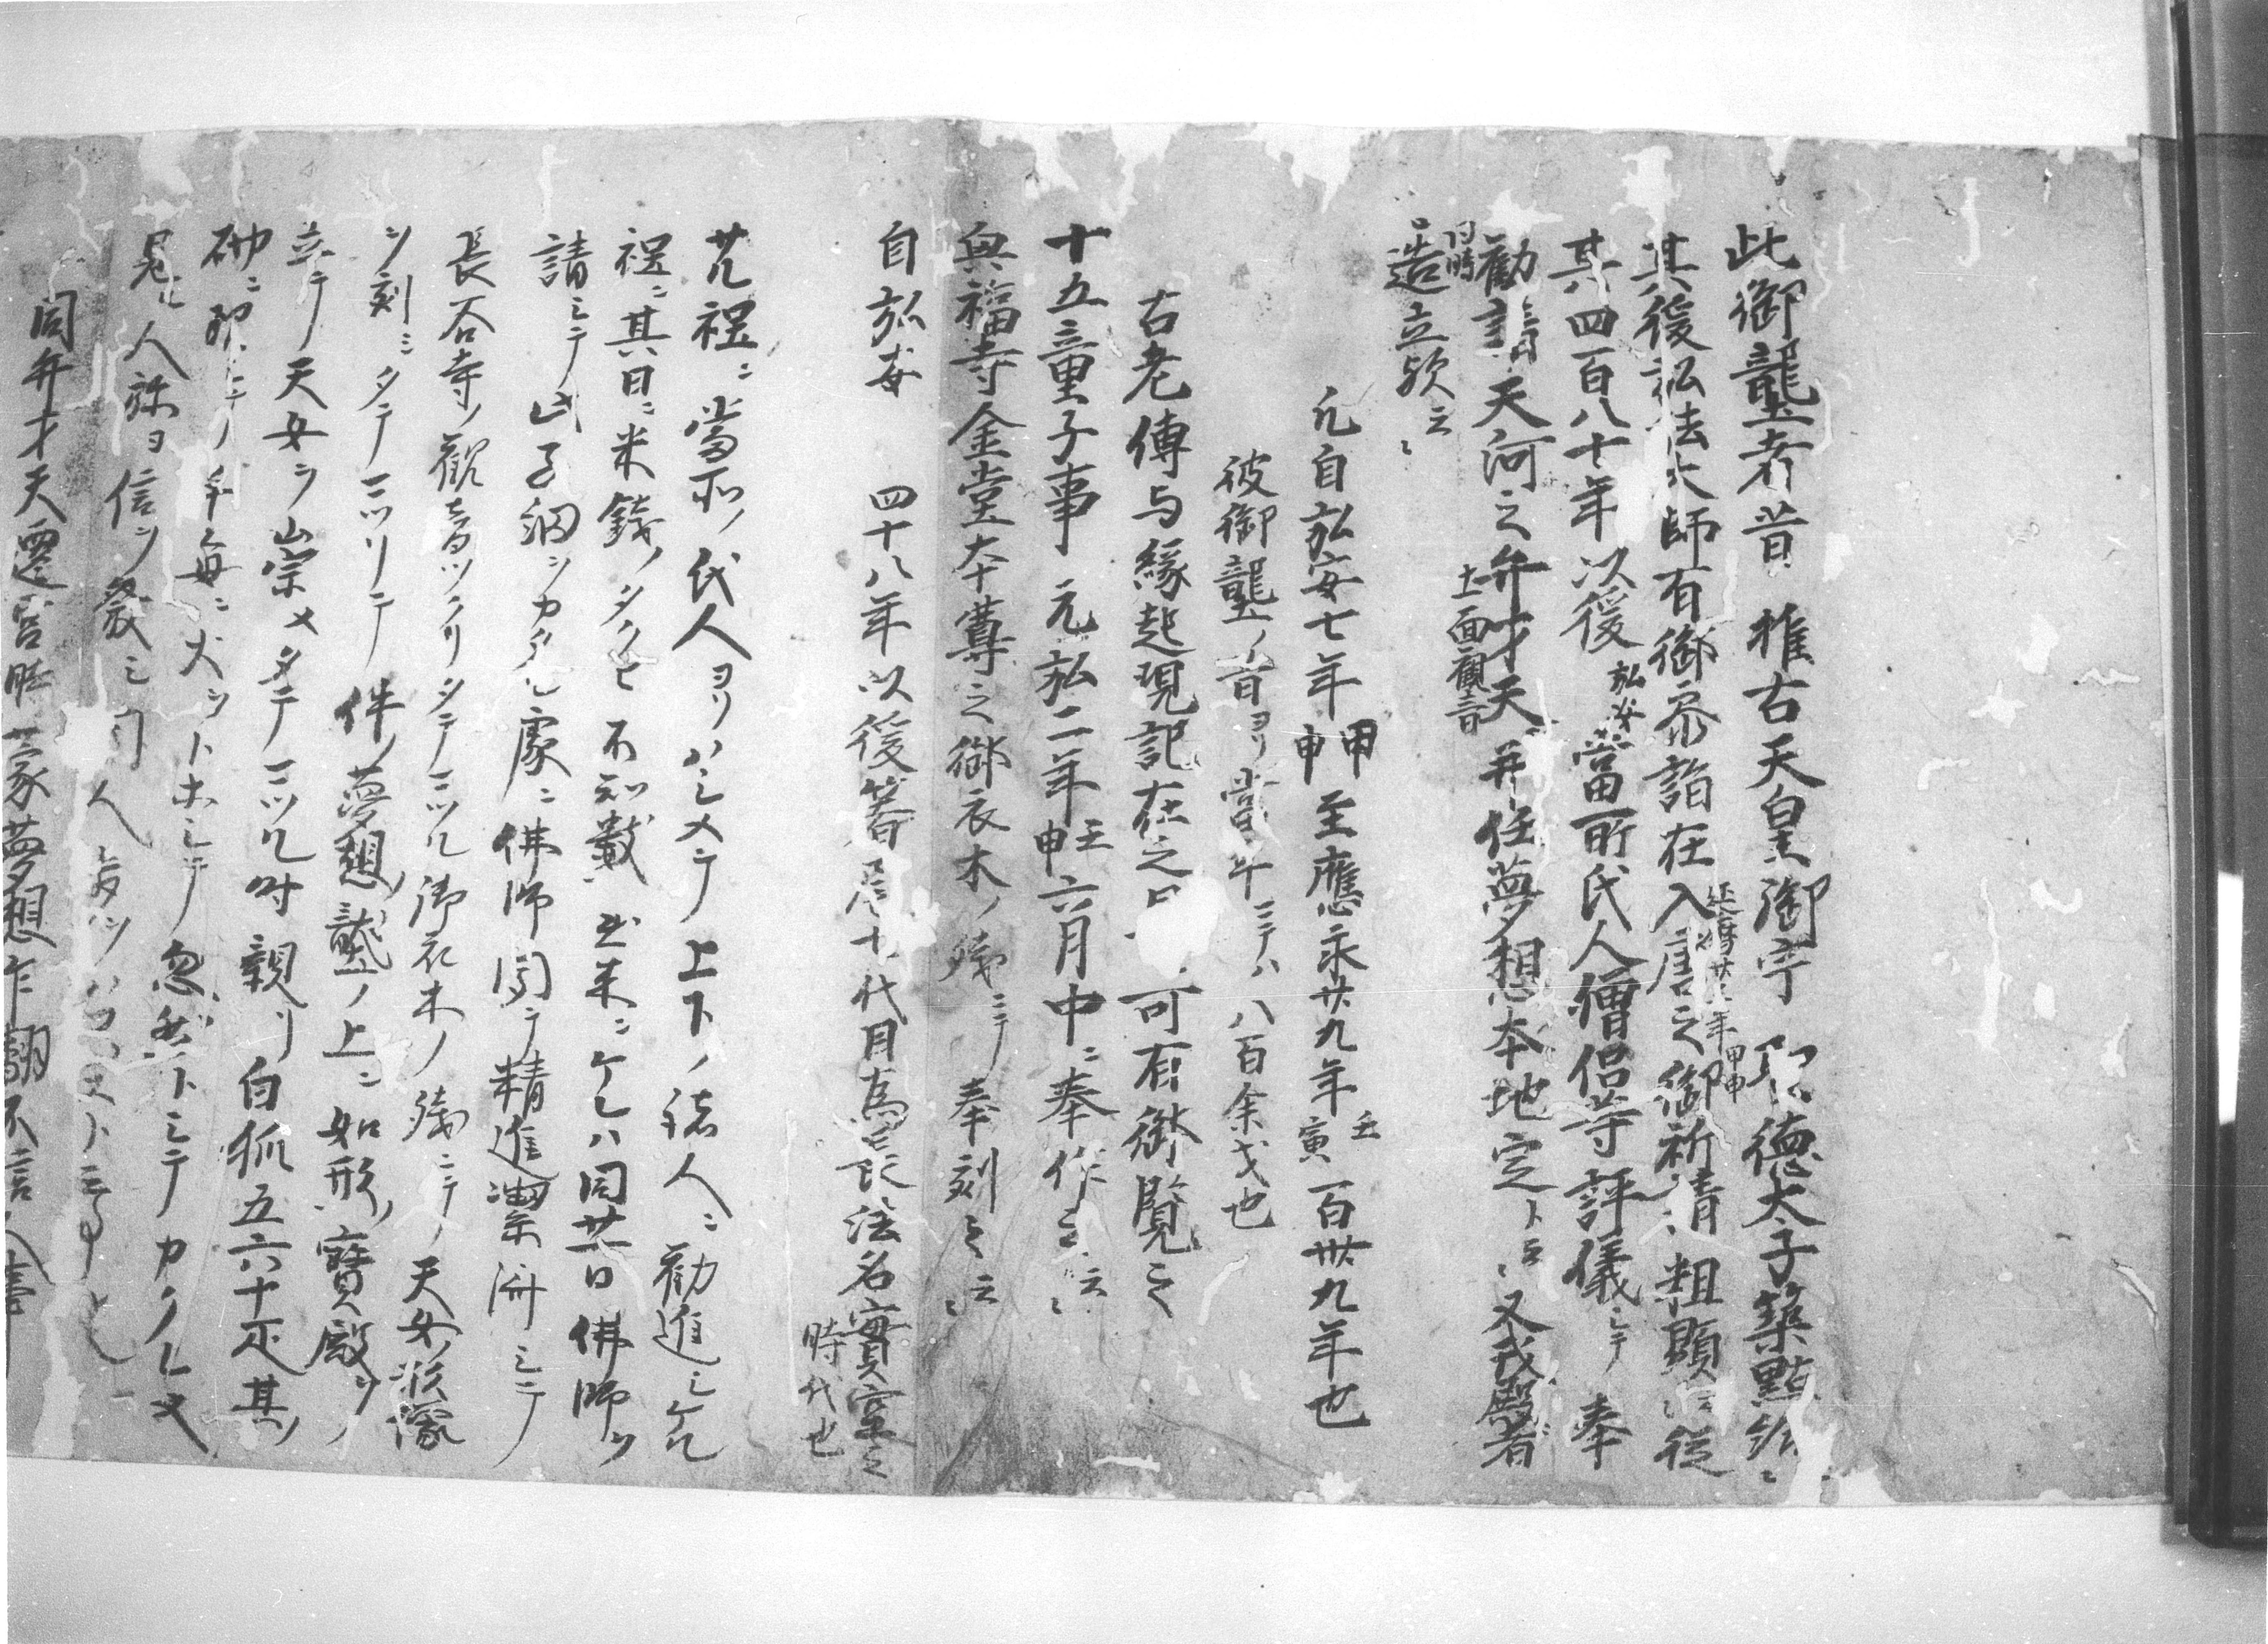 此御壟者昔 推古天皇御宇 聖徳太子築點給ニ
其後弘法大師有御参詣在入唐之御祈請粗顕云従
延暦廿三年甲申
其四百八十年以後弘安當所氏人僧侶等評儀シテ奉
勧請天河之弁才天并任夢想本地定ト云々又戎殿者
十一面観音
同時
造立歟云々
凡自弘安七年甲申至應永廿九年壬寅百卅九年也
彼御壟ノ昔ヨリ當年ニテハ八百余才也
古老傳与縁起現記在之可有御覧之
十五童子事 元弘二年壬申六月中ニ奉作之云々
興福寺金堂本尊之御衣木ノ残ニテ奉刻之云々
自弘安 四十八年以後筭居十代目為長法名實室之
時代也
ヲリハシメテ上下ノ諸人ニ勧進シケル
程ニ其日ニ米銭ノタクヒ不知數出来ニケレハ同廿日佛師ヲ
請シテ此子細ヲカタル處ニ佛師聞テ精進潔斎シテ
長谷寺ノ観音ツクリタテマツル御衣木ノ残ニテ天女形像
ヲ刻ミタテマツリテ件ノ夢想ノ壟ノ上ニ如形ノ寶殿ヲ
立テ天女ヲ崇メタテマツル時親リ白狐五六十疋其ノ
砌ニ現シテ毎ニ火ヲトホシテ忽然トシテカクレヌ
見ル人弥ヨ信ヲ發シ聞人
同弁才天遷宮時蒙夢想乍翻不信人